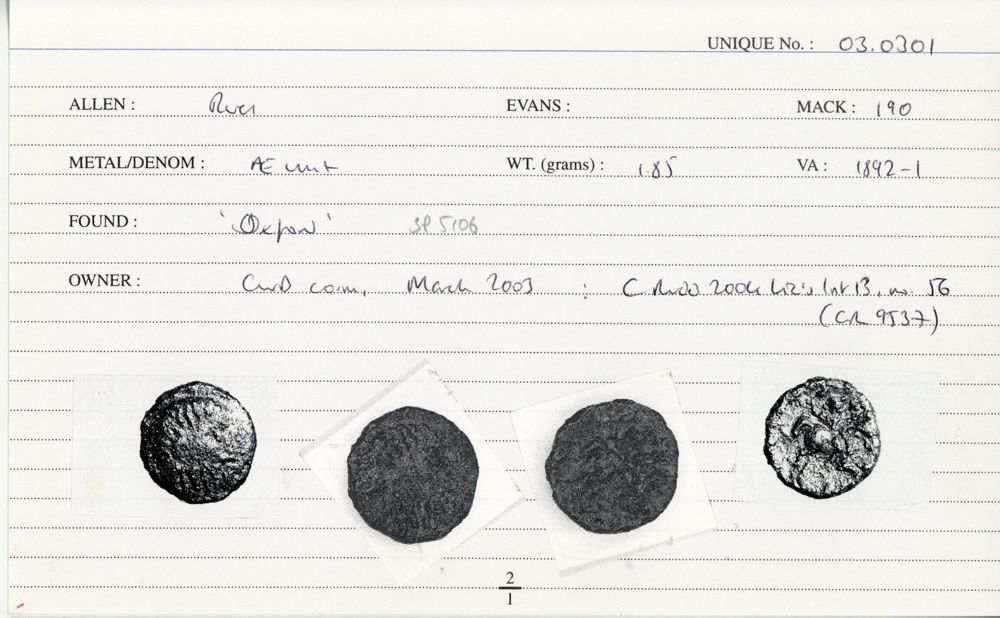 UNIQUE No. : 03.0301
ALLEN : Rues EVANS : MACK : 190
METAL/DENOM : Æ unit WT. (grams) : 1.85 VA : 1892-1
FOUND : 'Oxfon' SP 5106
OWNER : CWD com, March 2003 : C Rudd 2004 Liz's list 13, no. 56
(CR 9537)
2
1